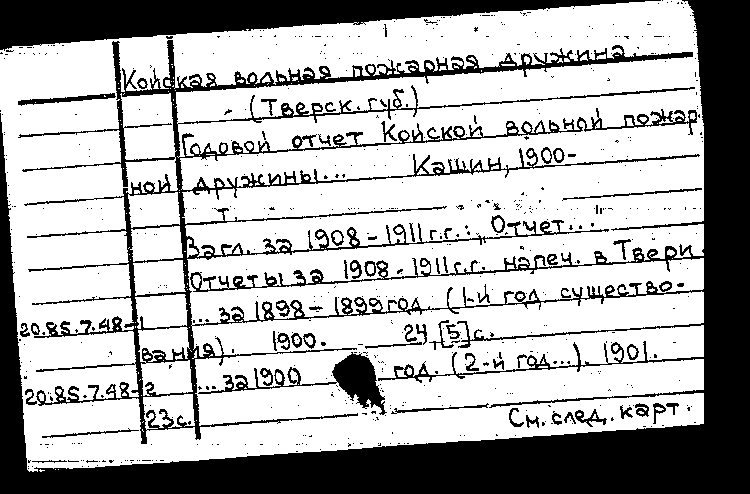 Койская вольная пожарная дружина.
(Тверск. губ.)
Годовой отчет Койской вольной пожар
ной дружины... Кашин, 1900-
т.
Загл. за 1908-1911 г.г.: „Отчет..."
Отчеты за 1908-1911 г.г. напеч. в Твери.
20.85.7.48-1 ... за 1898-1899 год. (1-й год существо-
вания). 1900. 24, [5] с.
20.85.7.48-2 ... за 1900 год. (2-й год...). 1901.
23 с.
См. след. карт.